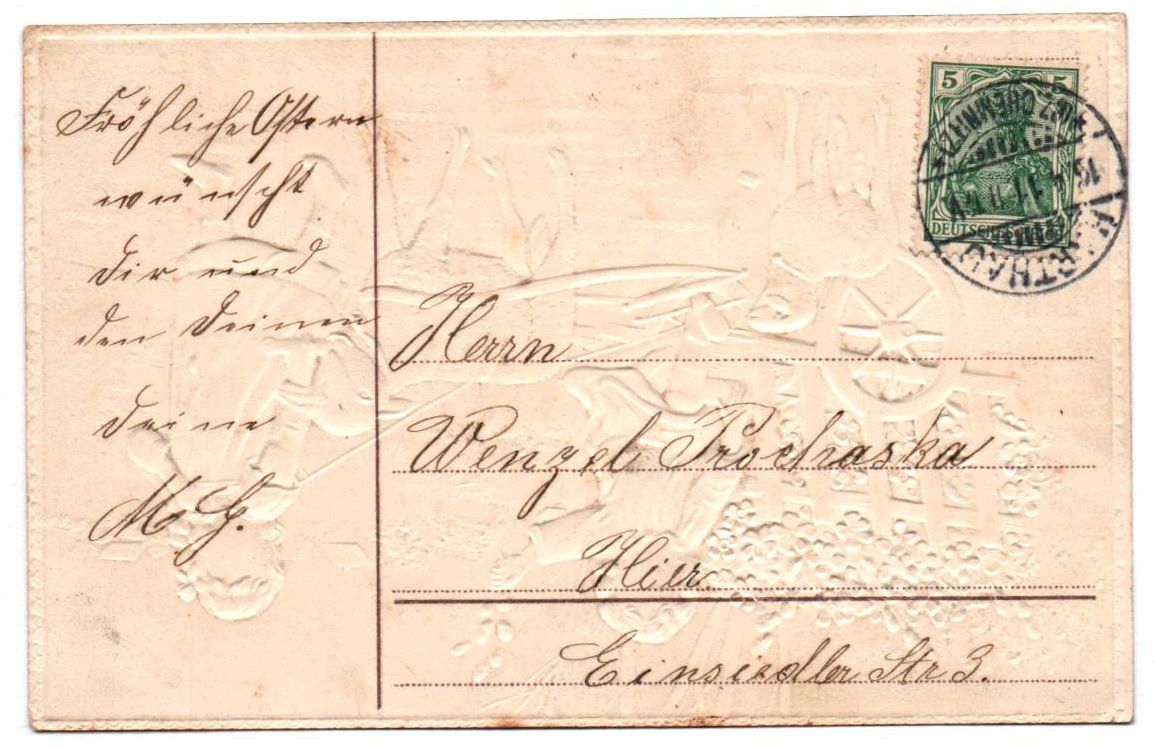 Fröhliche Ostern
wünscht
dir und
den Deinen
deine
M. G.
Herrn
Wenzel Prochaska
Hier
Einsiedler Str 3.
5 5
DEUTSCHES REICH
HARTHAU